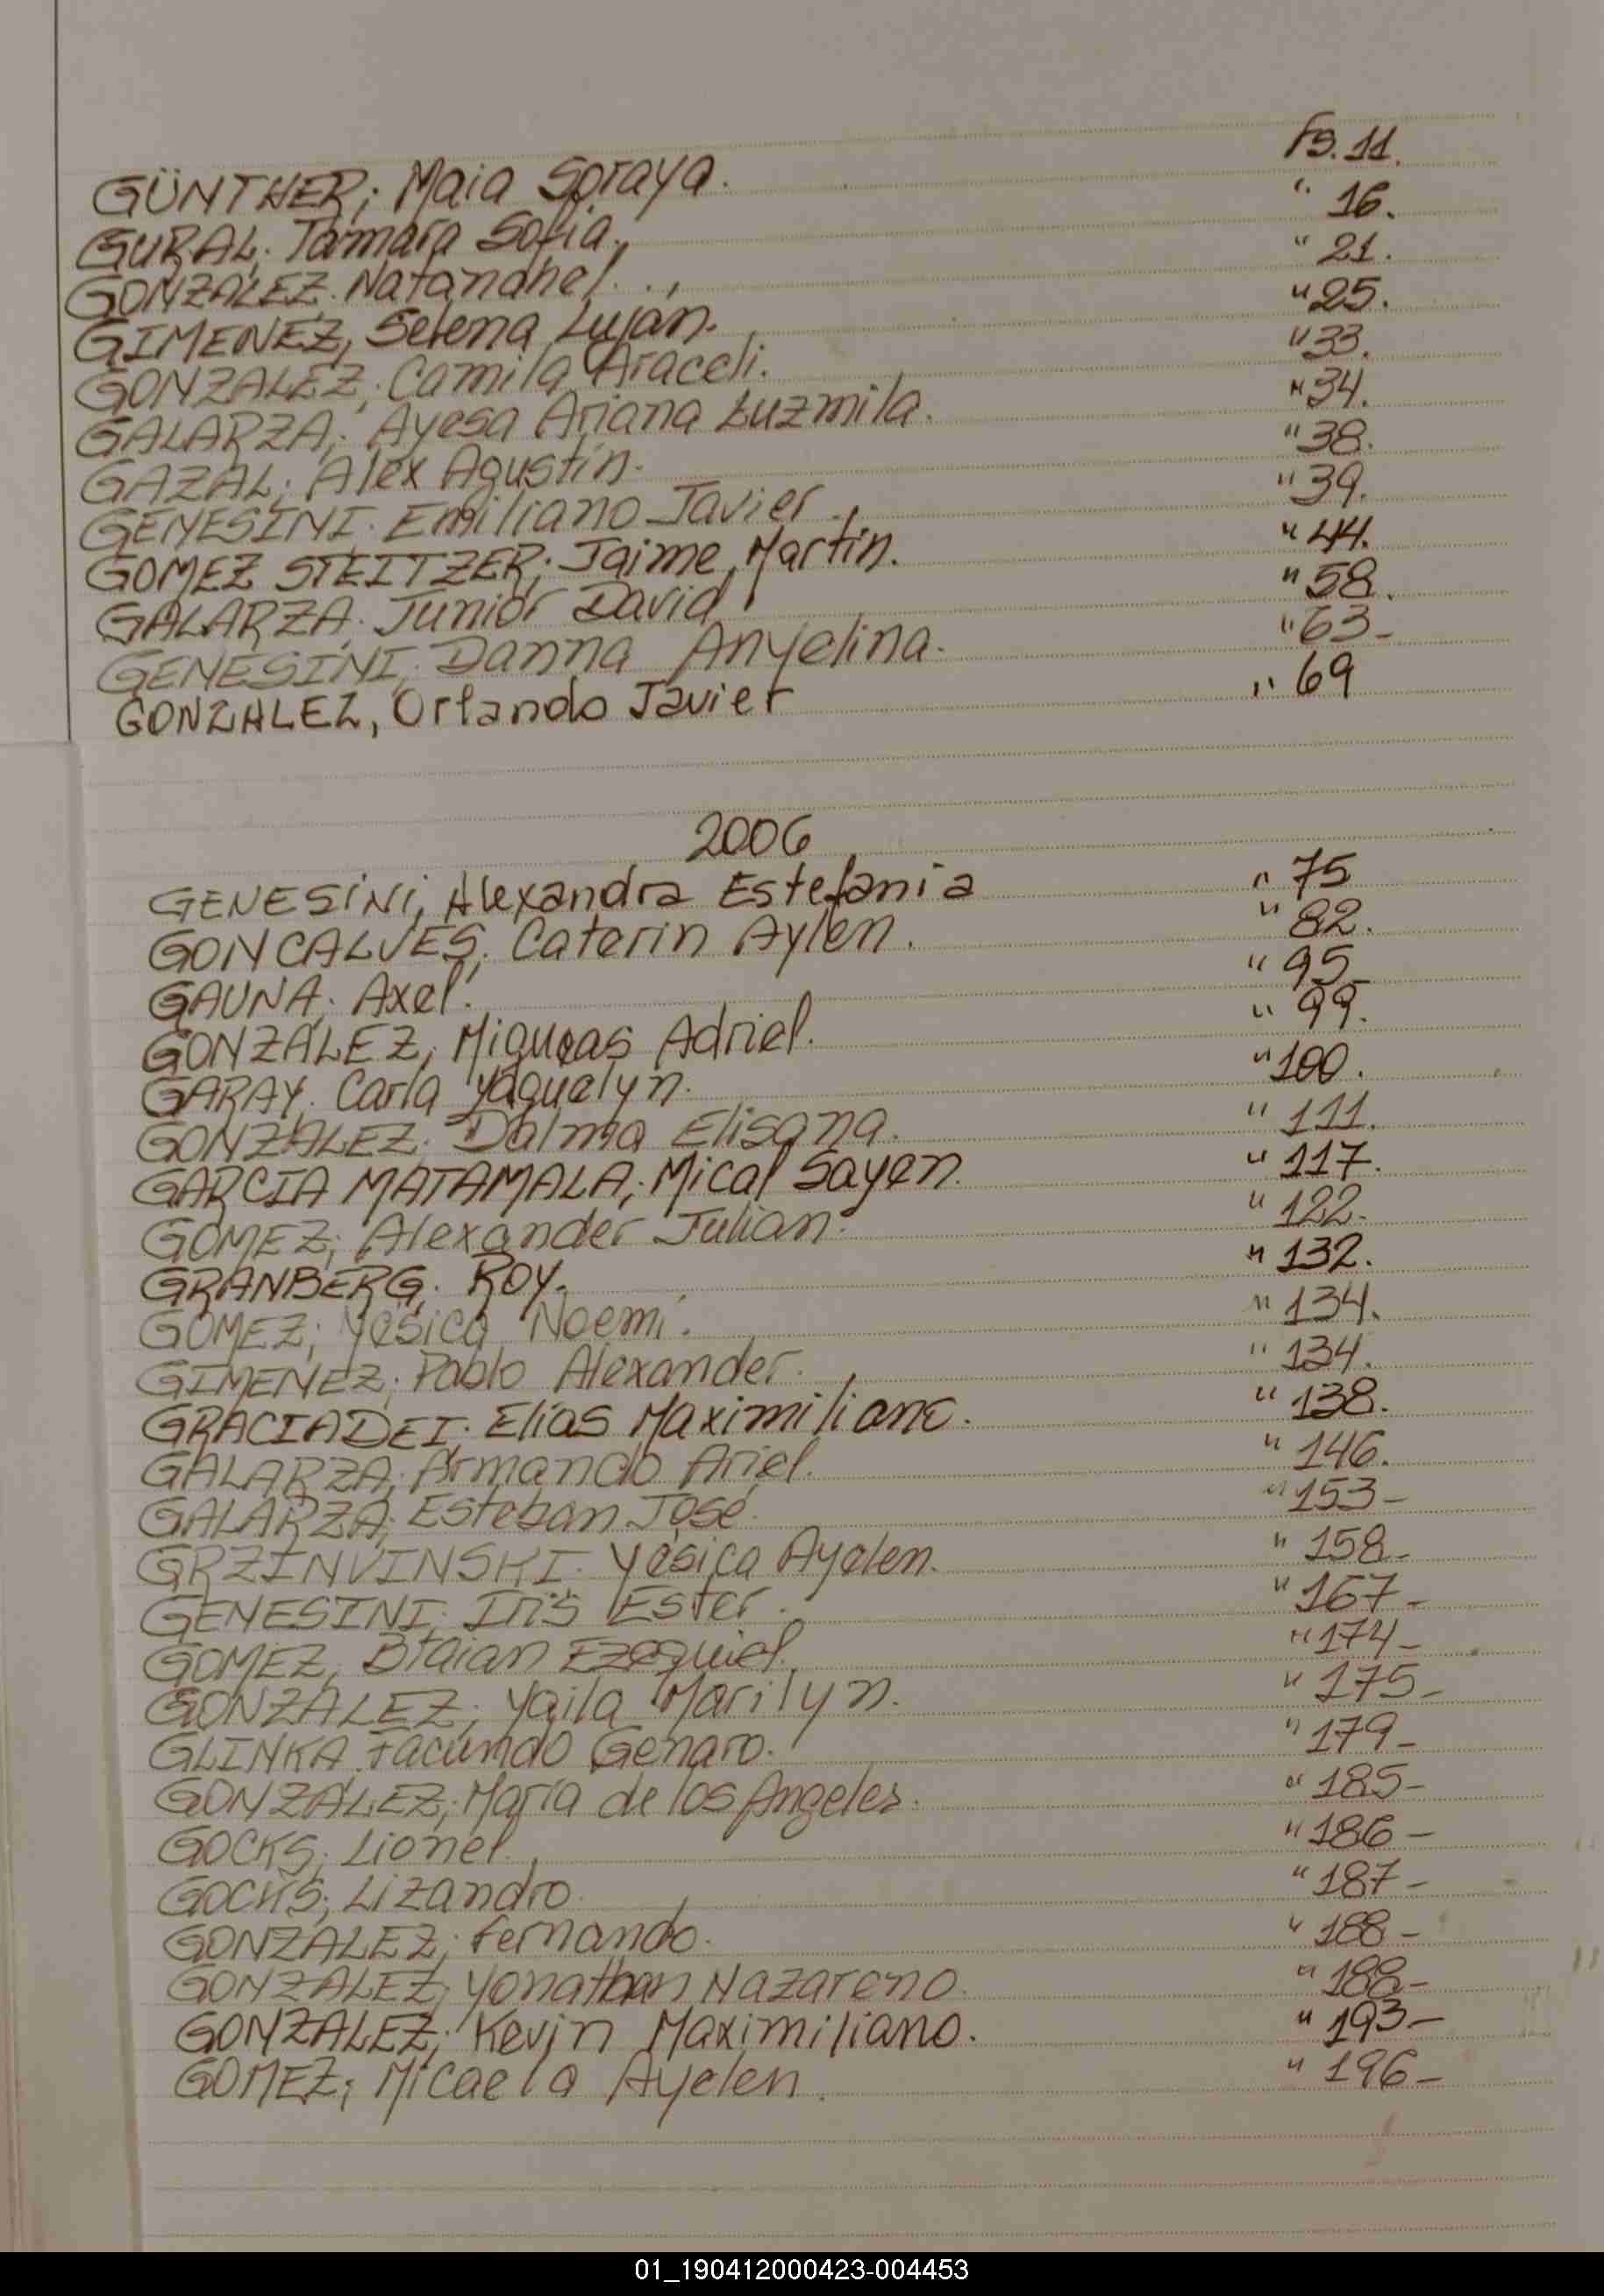 GÜNTHER; Maia Soraya. Fs. 11.
GURAL; Tamara Sofia. " 16.
GONZALEZ. Natanahel. " 21.
GIMENEZ, Selena Lujan. " 25.
GONZALEZ; Camila Araceli. " 33.
GALARZA; Ayesa Ariana Luzmila. " 34.
GAZAL; Alex Agustín. " 38.
GENESINI. Emiliano Javier. " 39.
GOMEZ STEITZER; Jaime Martín. " 44.
GALARZA; Junior David " 58.
GENESINI; Danna Anyelina. " 63-
GONZALEZ, Orlando Javier " 69
2006
GENESiNi, Alexandra Estefania " 75
GONCALVES; Caterin Aylen. " 82.
GAUNA; Axel. " 95-
GONZALEZ; Adriel. " 99.
GARAY; Carla Yaquelyn. " 100.
GONZALEZ; Dalma Elisana. " 111.
GARCIA MATAMALA; Mical Sayen. " 117.
GOMEZ; Alexander Julian. " 122.
GRANBERG; ROY. " 132.
GOMEZ; Yesica Noemí. " 134.
GIMENEZ; Pablo Alexander. " 134.
GRACIADEI; Elías Maximiliano. " 138.
GALARZA; Armando Ariel. " 146.
GALARZA; Esteban José. " 153-
GRZINVINSKI. Yesica Ayelen. " 158-
GENESINI; Iris Ester. " 167-
GOMEZ, Braian Ezequiel. " 174-
GONZALEZ; Yaila Marilyn. " 175-
GLINKA. Facundo Genaro. " 179-
GONZALEZ; María de los Angeles. " 185-
GOCKS; Lionel. " 186-
GOCKS; Lizandro. " 187-
GONZALEZ; Fernando. " 188-
GONZALEZ; Yonathan Nazareno. " 188-
GONZALEZ; Kevin Maximiliano. " 193-
GOMEZ; Micaela Ayelen. " 196-
01_190412000423-004453